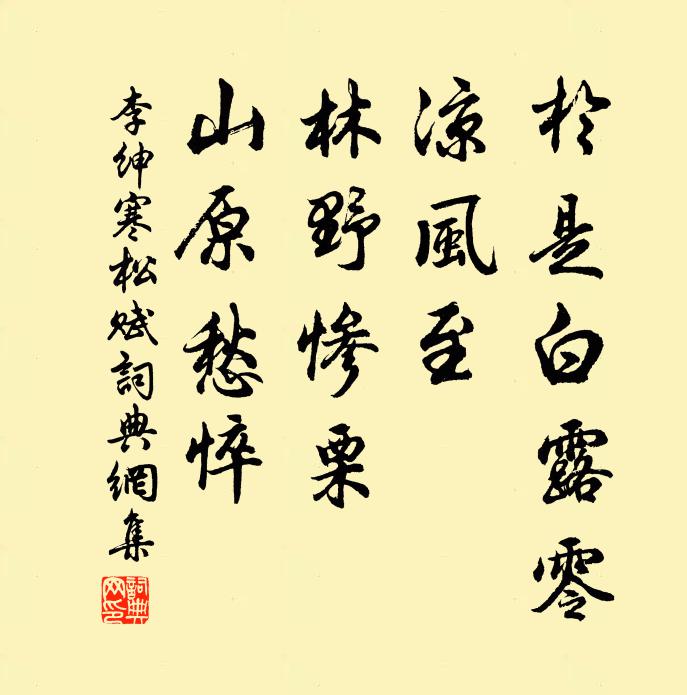 於是白露零
涼風至
林野慘栗
山原愁悴
李紳寒松賦詞典網集
詞典網印